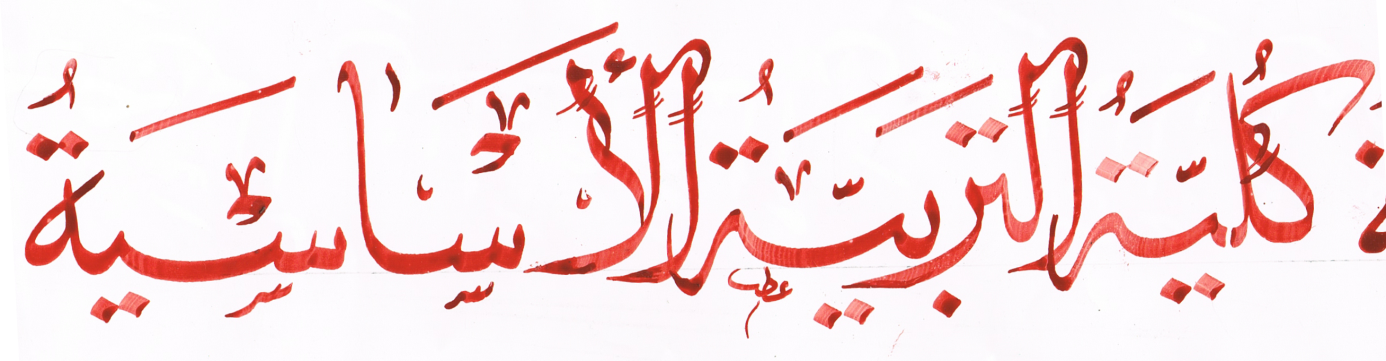 كُلِّيَّةُ التَّرْبِيَّةُ الأَسَاسِيَّةُ